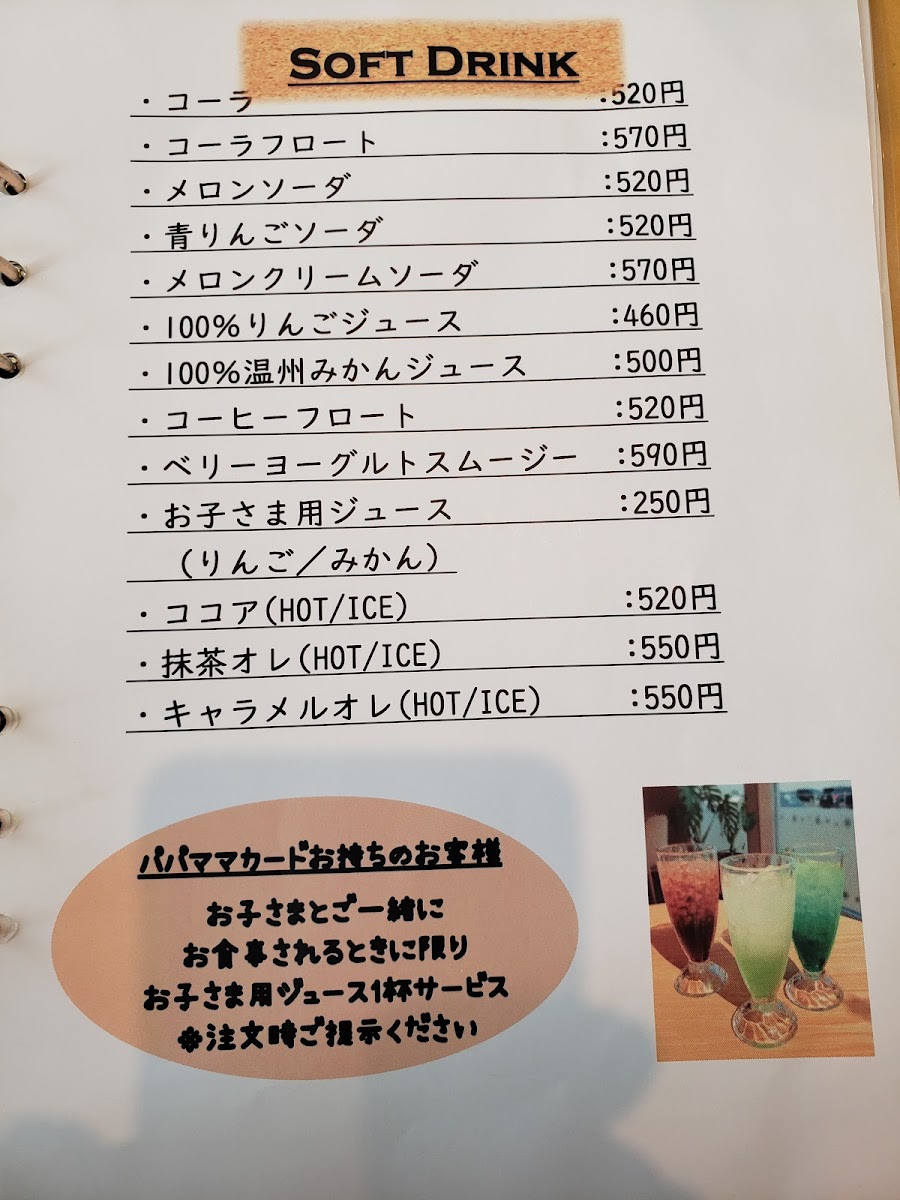 SOFT DRINK
・コーラ :520円
・コーラフロート :570円
・メロンソーダ :520円
・青りんごソーダ :520円
・メロンクリームソーダ :570円
・100%りんごジュース :460円
・100%温州みかんジュース :500円
・コーヒーフロート :520円
・ベリーヨーグルトスムージー :590円
・お子さま用ジュース :250円
（りんご／みかん）
・ココア(HOT/ICE) :520円
・抹茶オレ(HOT/ICE) :550円
・キャラメルオレ(HOT/ICE) :550円
パパママカードお持ちのお客様
お子さまとご一緒に
お食事されるときに限り
お子さま用ジュース1杯サービス
※注文時ご提示ください